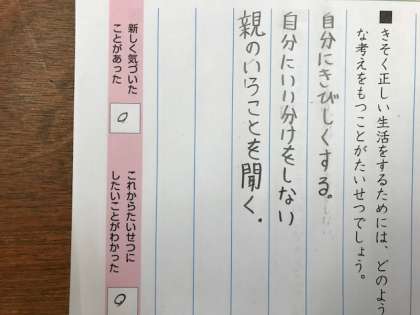 ■きそく正しい生活をするためには、どのよう
な考えをもつことがたいせつでしょう。
自分にきびしくする。
自分にいい分けをしない
親のいうことを聞く.
新しく気づいた
ことがあった
○
これからたいせつに
したいことがわかった
○